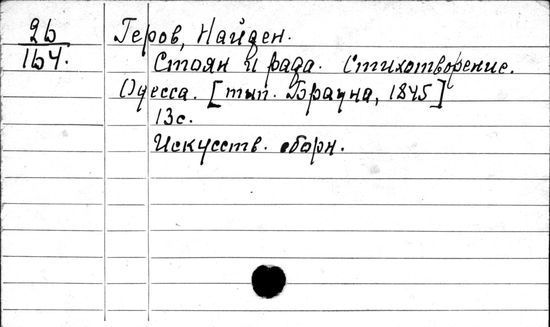 2b Геров, Найден.
1b4. Стоян и рада. Стихотворение.
Одесса. [тип. Брауна, 1845]
13с.
Искусств. сборн.